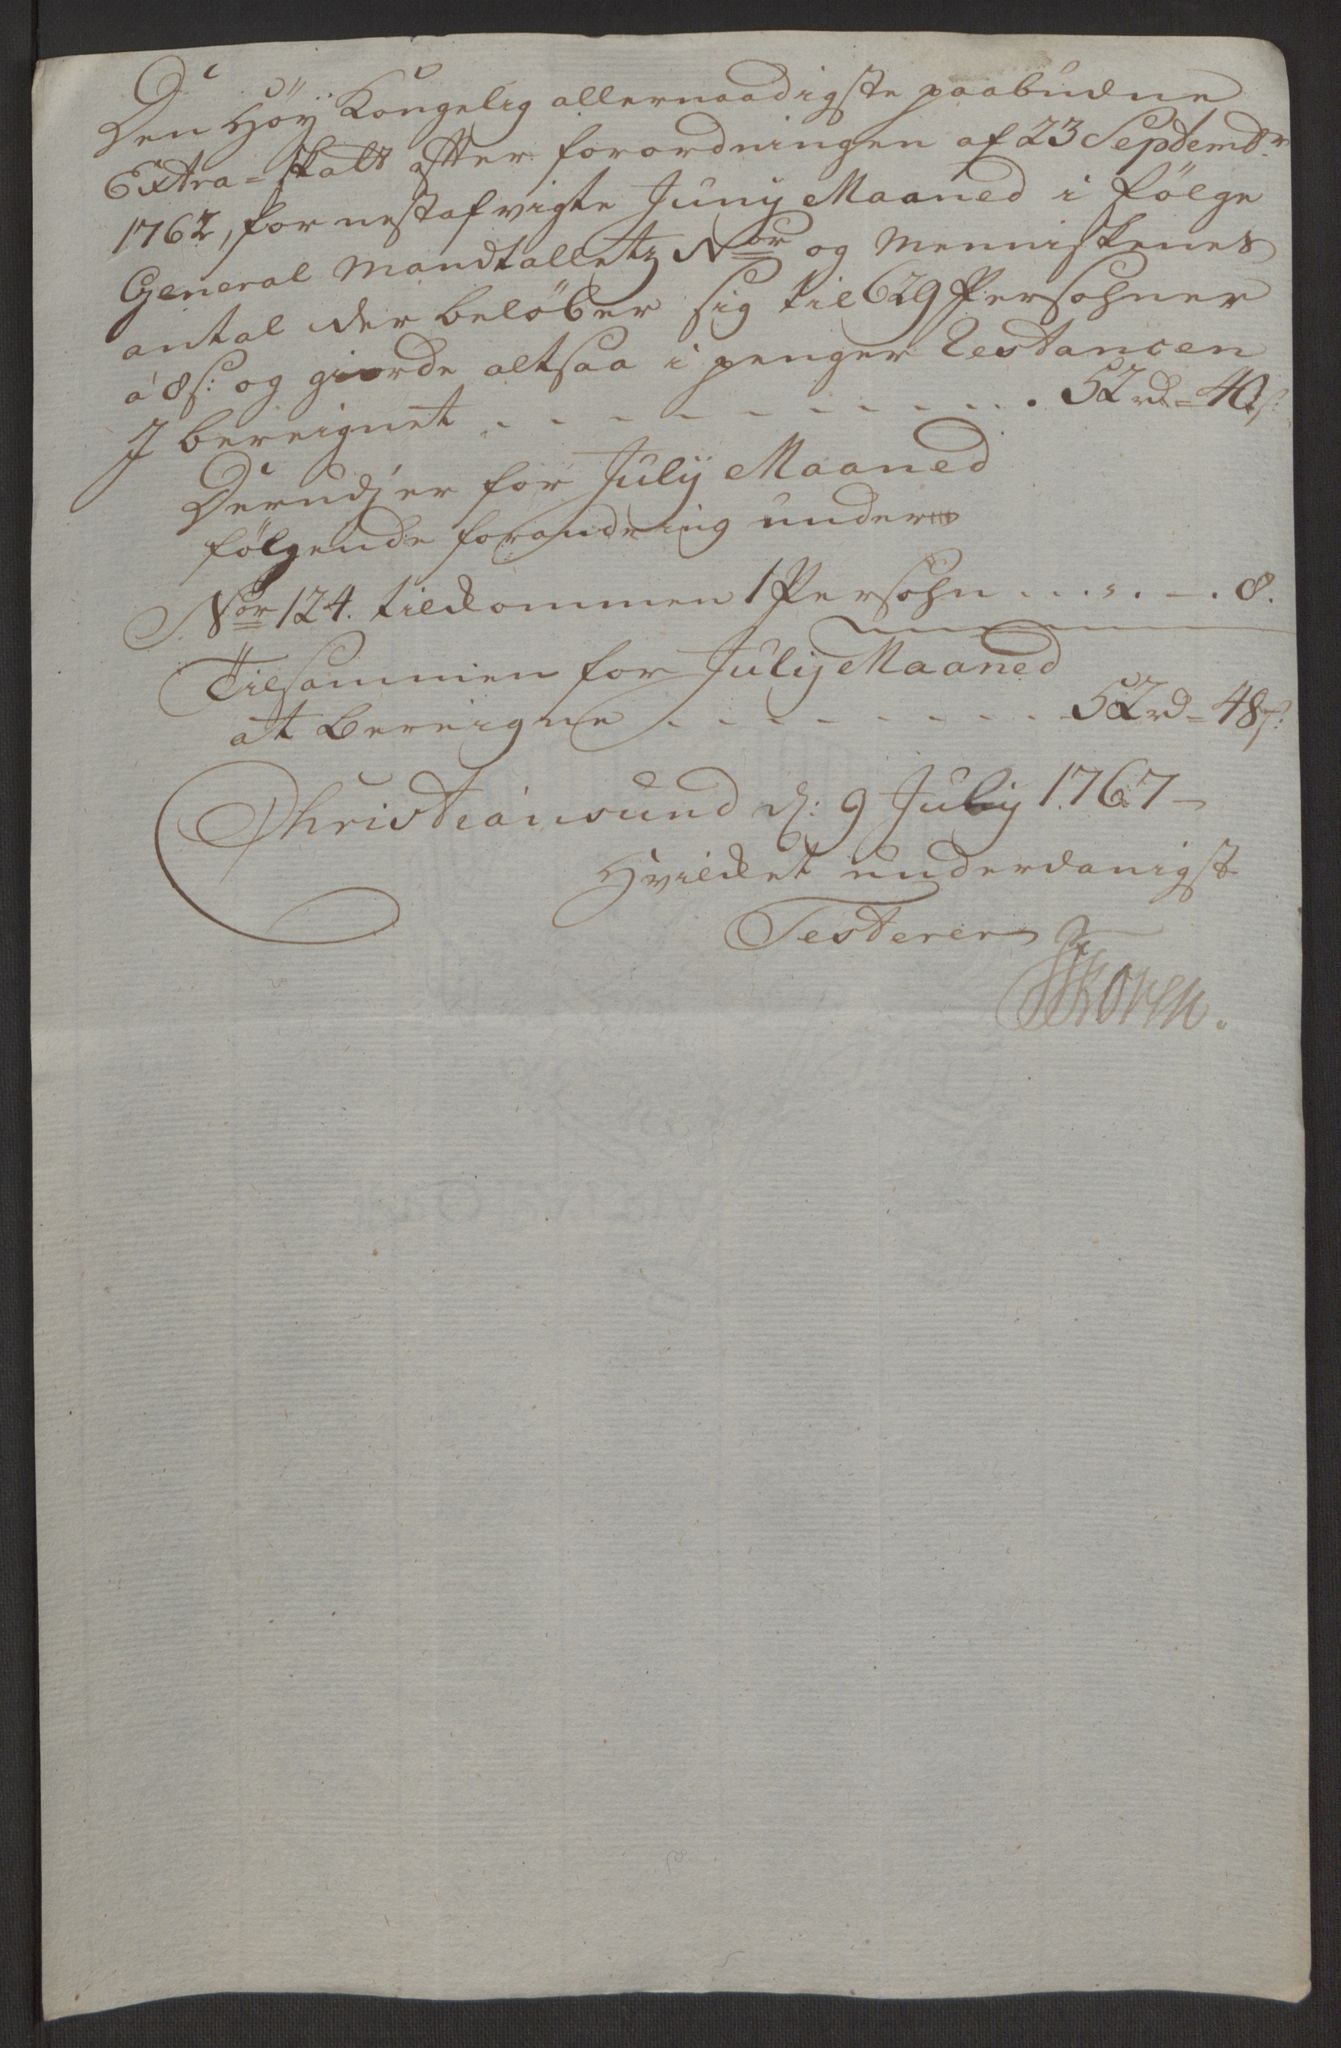 Den Höÿ Kongelig allernaadigste paabudne
Extra-Skatt efter forordningen af 23 Septembr
1762, for nestafvigte Junÿ Maaned i følge
General Mandtalletz Nor og Menniskenes
antal der beløber sig til 629 Persohner
á 8 s: og giorde altsaa i penger Restancen
I bereignet . . . . . . . . . . 52 rd = 40 s:
Derudj er for Julij Maaned
følgende forandring under
Nor 124. tilkommen 1 Persohn . . . . . 8.
Tilsammen for Julij Maaned
at bereigne . . . . . . . . 52 rd = 48 s:
Christiansund d: 9 Julij 1767
Hvilket underdanigst
Testerer